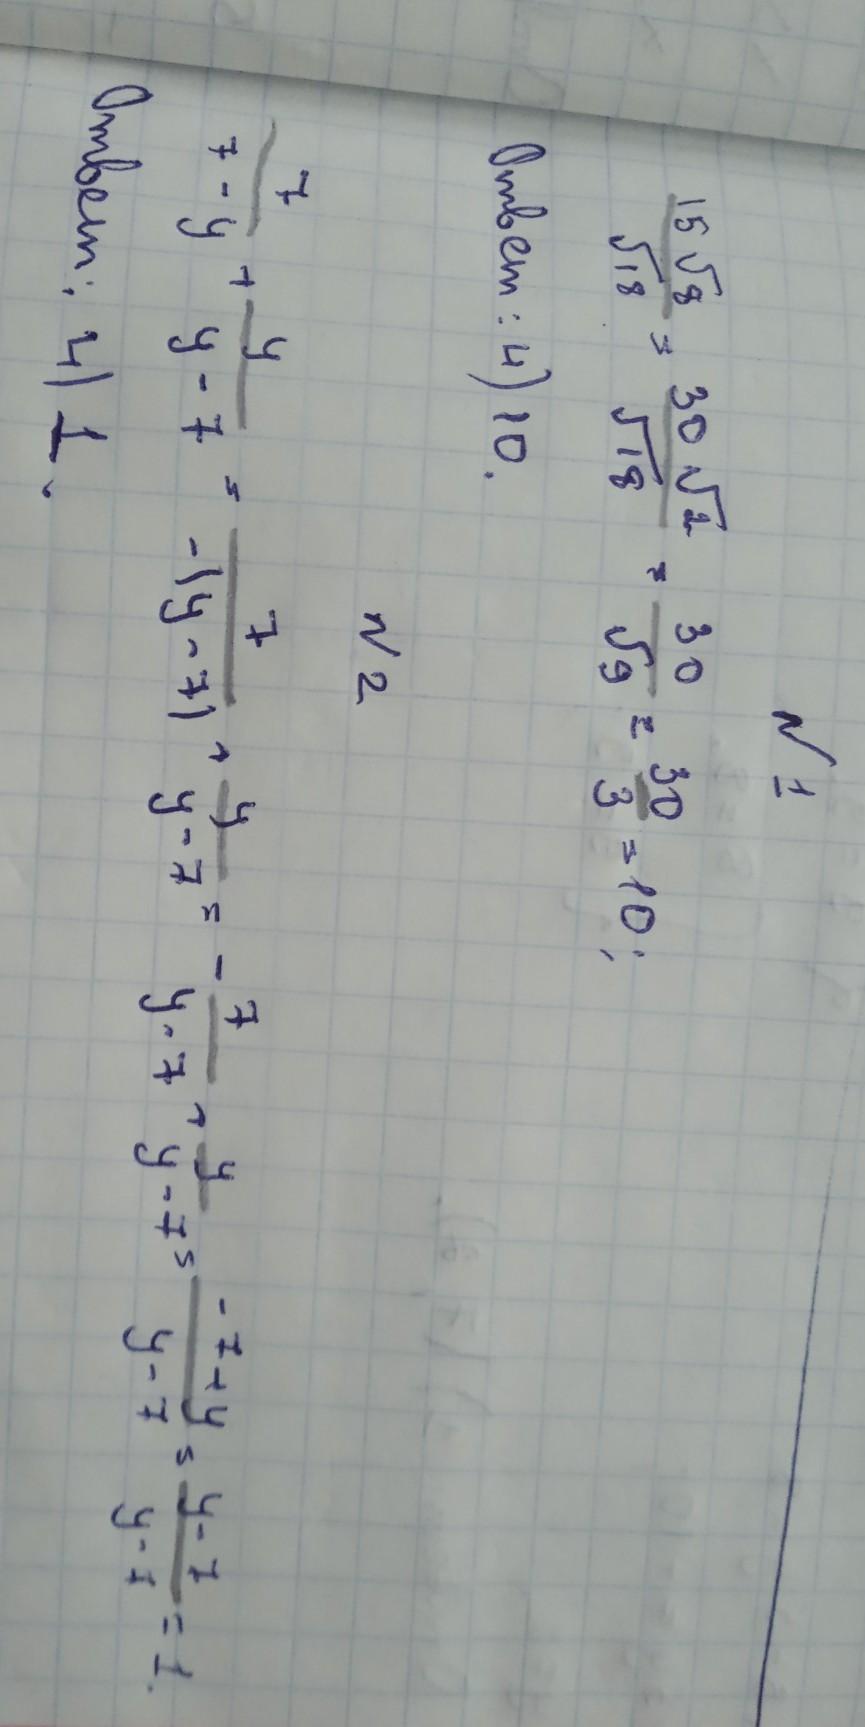 N 1
15√8/√18 = 30√2/√18 = 30/√9 = 30/3 = 10;
Ответ: 4) 10.
N 2
7/(7-y) + y/(y-7) = 7/(-(y-7)) + y/(y-7) = -7/(y-7) + y/(y-7) = (-7+y)/(y-7) = (y-7)/(y-7) = 1.
Ответ: 4) 1.